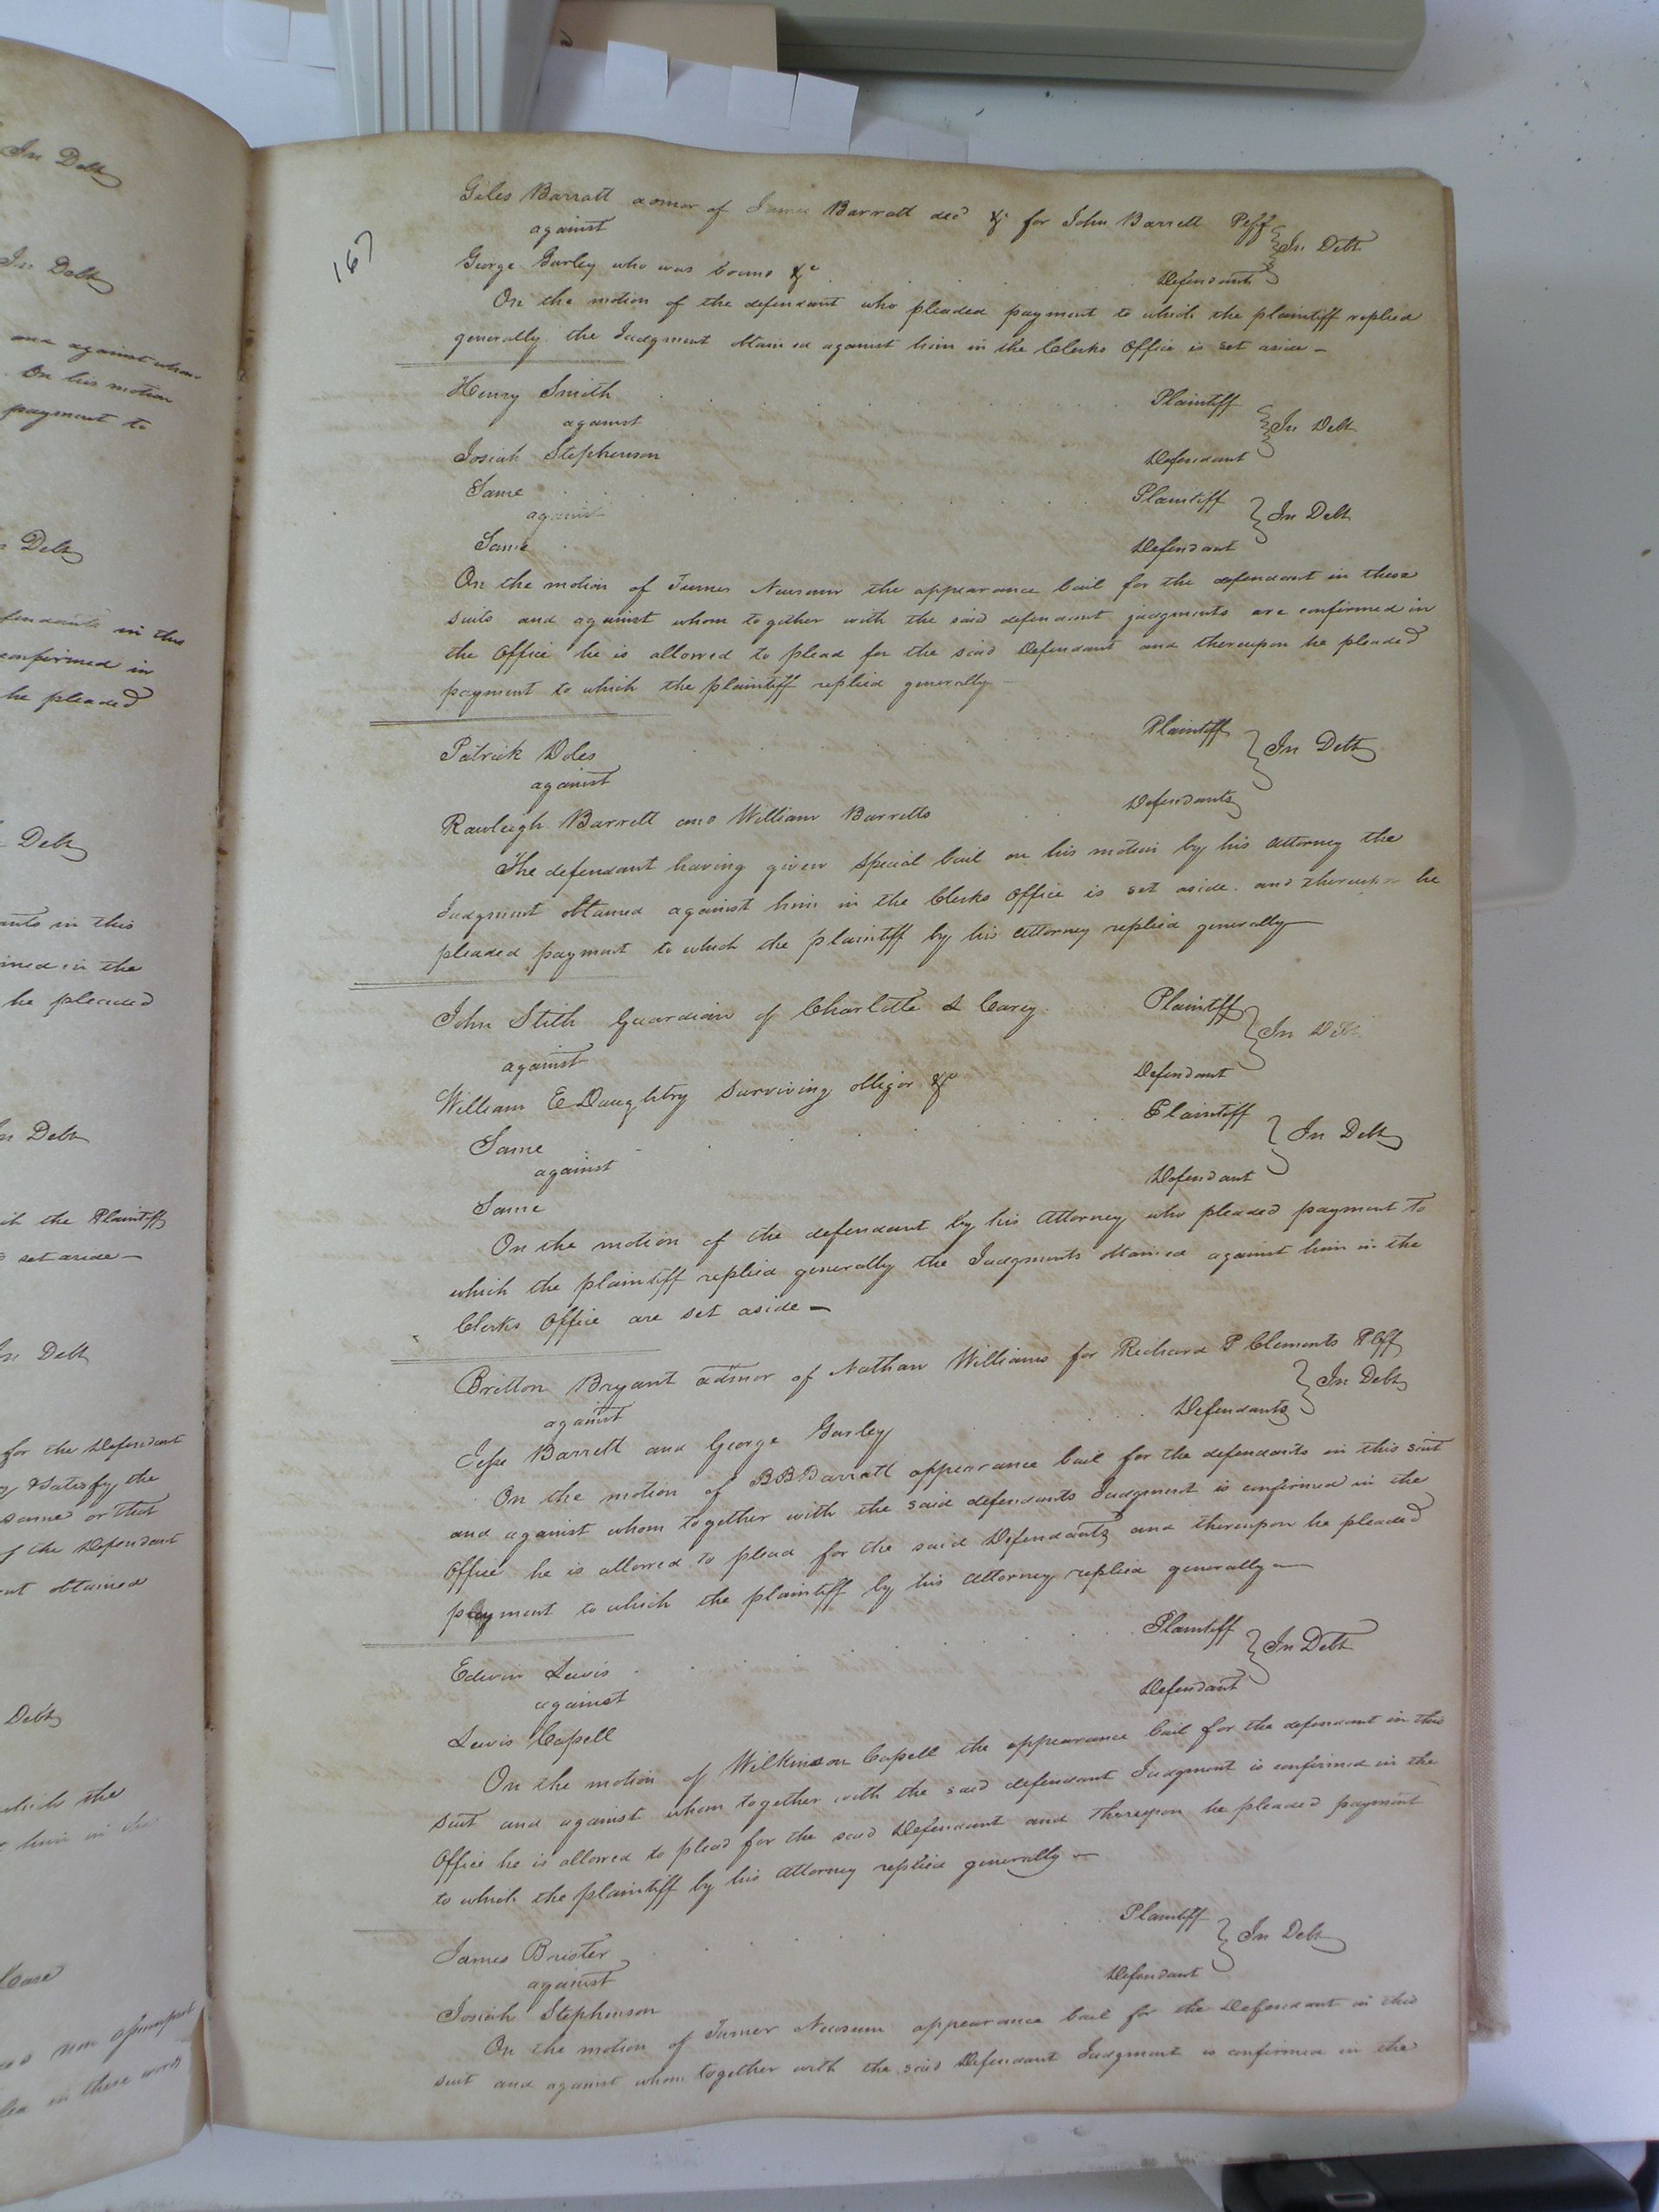 In Debt
In Debt
and against whom
On his motion
payment to
Debt
fendants in this
confirmed in
he pleaded
Debt
ants in this
ined in the
he pleaded
In Debt
the Plaintiff
set aside —
In Debt
for the Defendant
satisfy the
same or that
of the Defendant
obtained
Debt
which the
him in the
Case
non assumpsit
in these words
167
Giles Barratt admor of James Barratt decd &c for John Barrett Peff
against
In Debt
George Gurley who was bound &c Defendant
On the motion of the defendant who pleaded payment to which the plaintiff replied
generally the Judgment obtained against him in the Clerks Office is set aside —
Henry Smith Plaintiff
against
In Debt
Josiah Stephenson Defendant
Same Plaintiff
against
In Debt
Same Defendant
On the motion of Turner Newsum the appearance bail for the defendant in these
suits and against whom together with the said defendant judgments are confirmed in
the Office he is allowed to plead for the said Defendant and thereupon he pleaded
payment to which the plaintiff replied generally —
Patrick Doles Plaintiff
against
In Debt
Rawleigh Barrett and William Barrett Defendants
The defendant having given special bail on his motion by his attorney the
Judgment obtained against him in the Clerks Office is set aside and thereupon he
pleaded payment to which the plaintiff by his attorney replied generally —
John Stith Guardian of Charlotte & Carey Plaintiff
against
In Debt
William E Daughtry surviving obligor &c Defendant
Same Plaintiff
against
In Debt
Same Defendant
On the motion of the defendant by his Attorney who pleaded payment to
which the plaintiff replied generally the Judgments obtained against him in the
Clerks Office are set aside —
Britton Bryant admor of Nathan Williams for Richard P Clements Plff
against
In Debt
Jesse Barrett and George Gurley Defendants
On the motion of B B Barratt appearance bail for the defendants in this suit
and against whom together with the said defendants Judgment is confirmed in the
Office he is allowed to plead for the said Defendants and thereupon he pleaded
payment to which the plaintiff by his attorney replied generally —
Edwin Lewis Plaintiff
against
In Debt
Lewis Capell Defendant
On the motion of Wilkinson Capell the appearance bail for the defendant in this
suit and against whom together with the said defendant Judgment is confirmed in the
Office he is allowed to plead for the said Defendant and thereupon he pleaded payment
to which the plaintiff by his attorney replied generally —
James Brister Plaintiff
against
In Debt
Josiah Stephenson Defendant
On the motion of Turner Newsum appearance bail for the Defendant in this
suit and against whom together with the said Defendant Judgment is confirmed in the